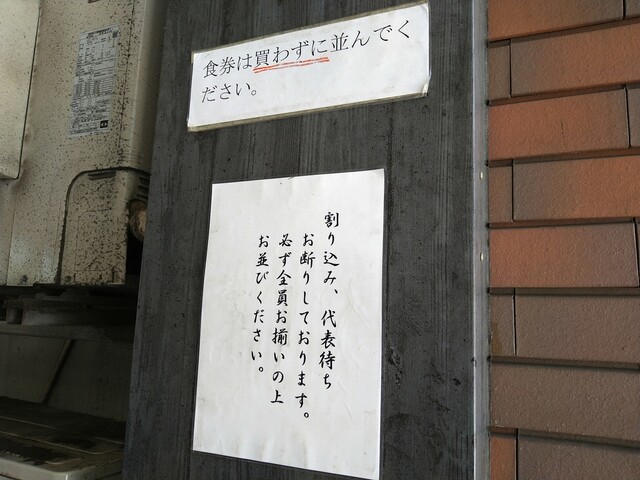 食券は買わずに並んでく
ださい。
割り込み、代表待ち
お断りしております。
必ず全員お揃いの上
お並びください。